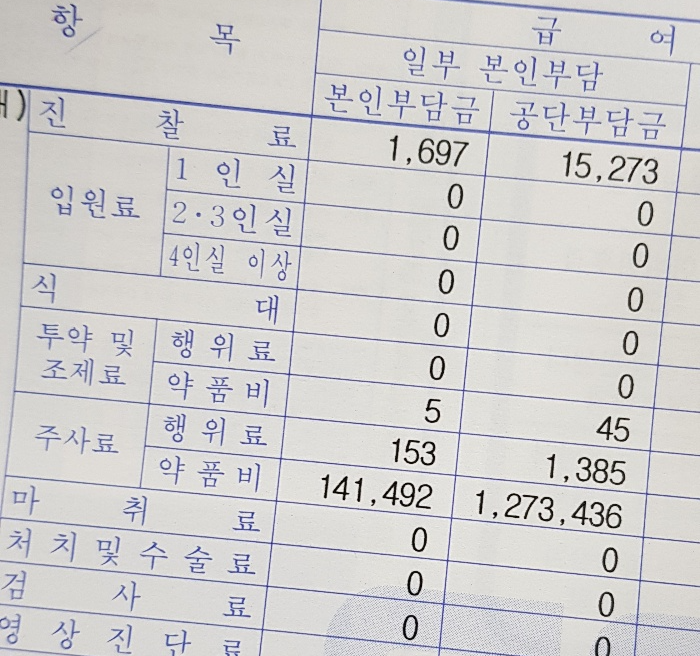 항 목
급 여
일부 본인부담
본인부담금 공단부담금
진 찰 료 1,697 15,273
입원료
1 인 실 0 0
2·3인실 0 0
4인실 이상 0 0
식 대 0 0
투약 및
조제료
행 위 료 0 0
약 품 비 5 45
주사료
행 위 료 153 1,385
약 품 비 141,492 1,273,436
마 취 료 0 0
처 치 및 수 술 료 0 0
검 사 료 0 0
영 상 진 단 료